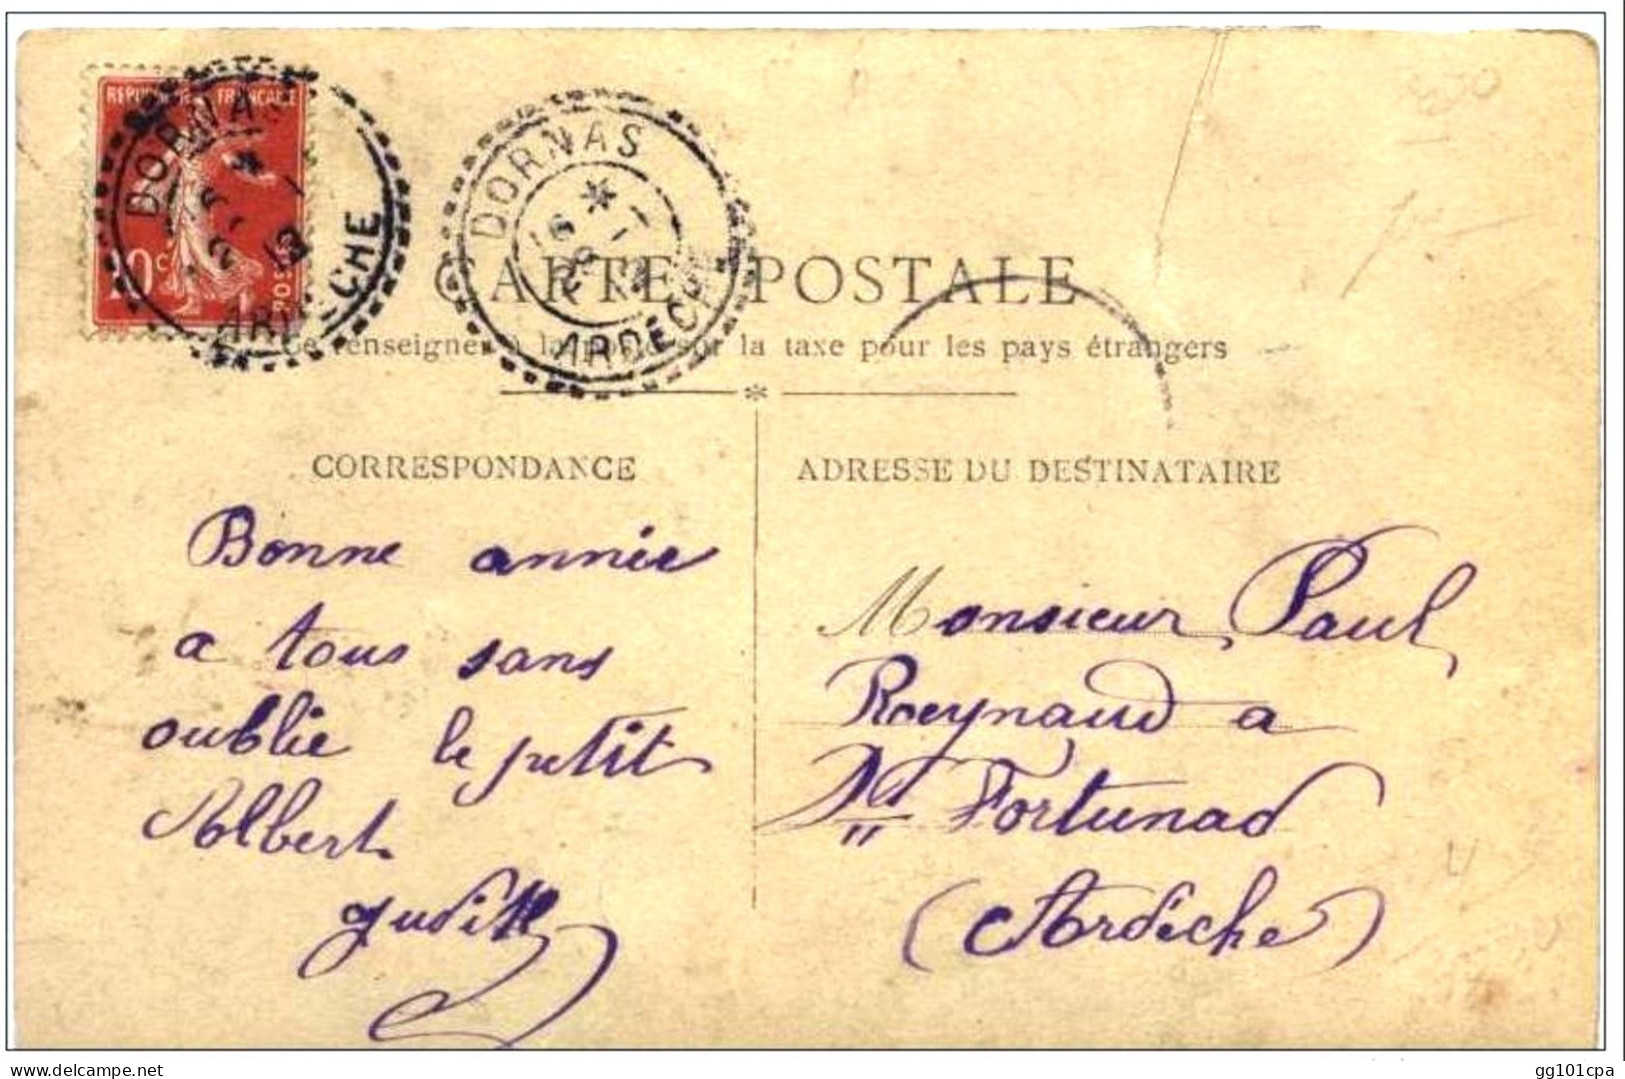 REPUBLIQUE FRANÇAISE
10c POSTES
DORNAS
16 *
ARDECHE
DORNAS
16 *
28 - 1
12
ARDECHE
CARTE POSTALE
Se renseigner à la poste sur la taxe pour les pays étrangers
CORRESPONDANCE
ADRESSE DU DESTINATAIRE
Bonne année
a tous sans
oublie le petit
Albert
Judith
Monsieur Paul
Reynaud a
St Fortunad
(Ardèche)
Delcampe.net
gg101cpa